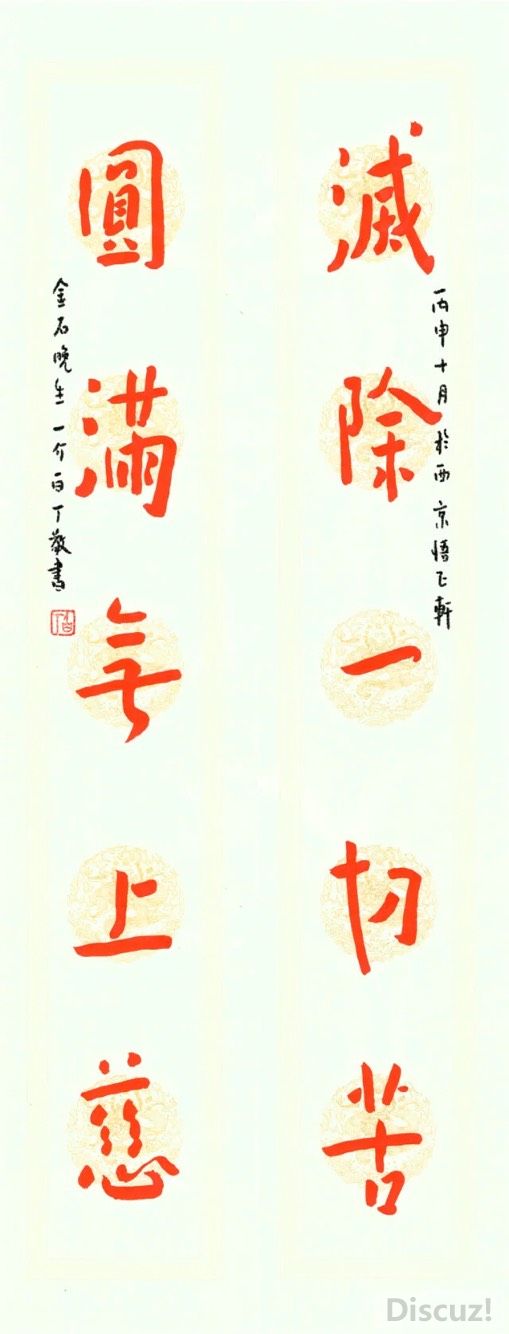 滅除一切苦
丙申十月於西京悟正軒
圓滿無上慈
金石晚生一介白丁敬書
Discuz!